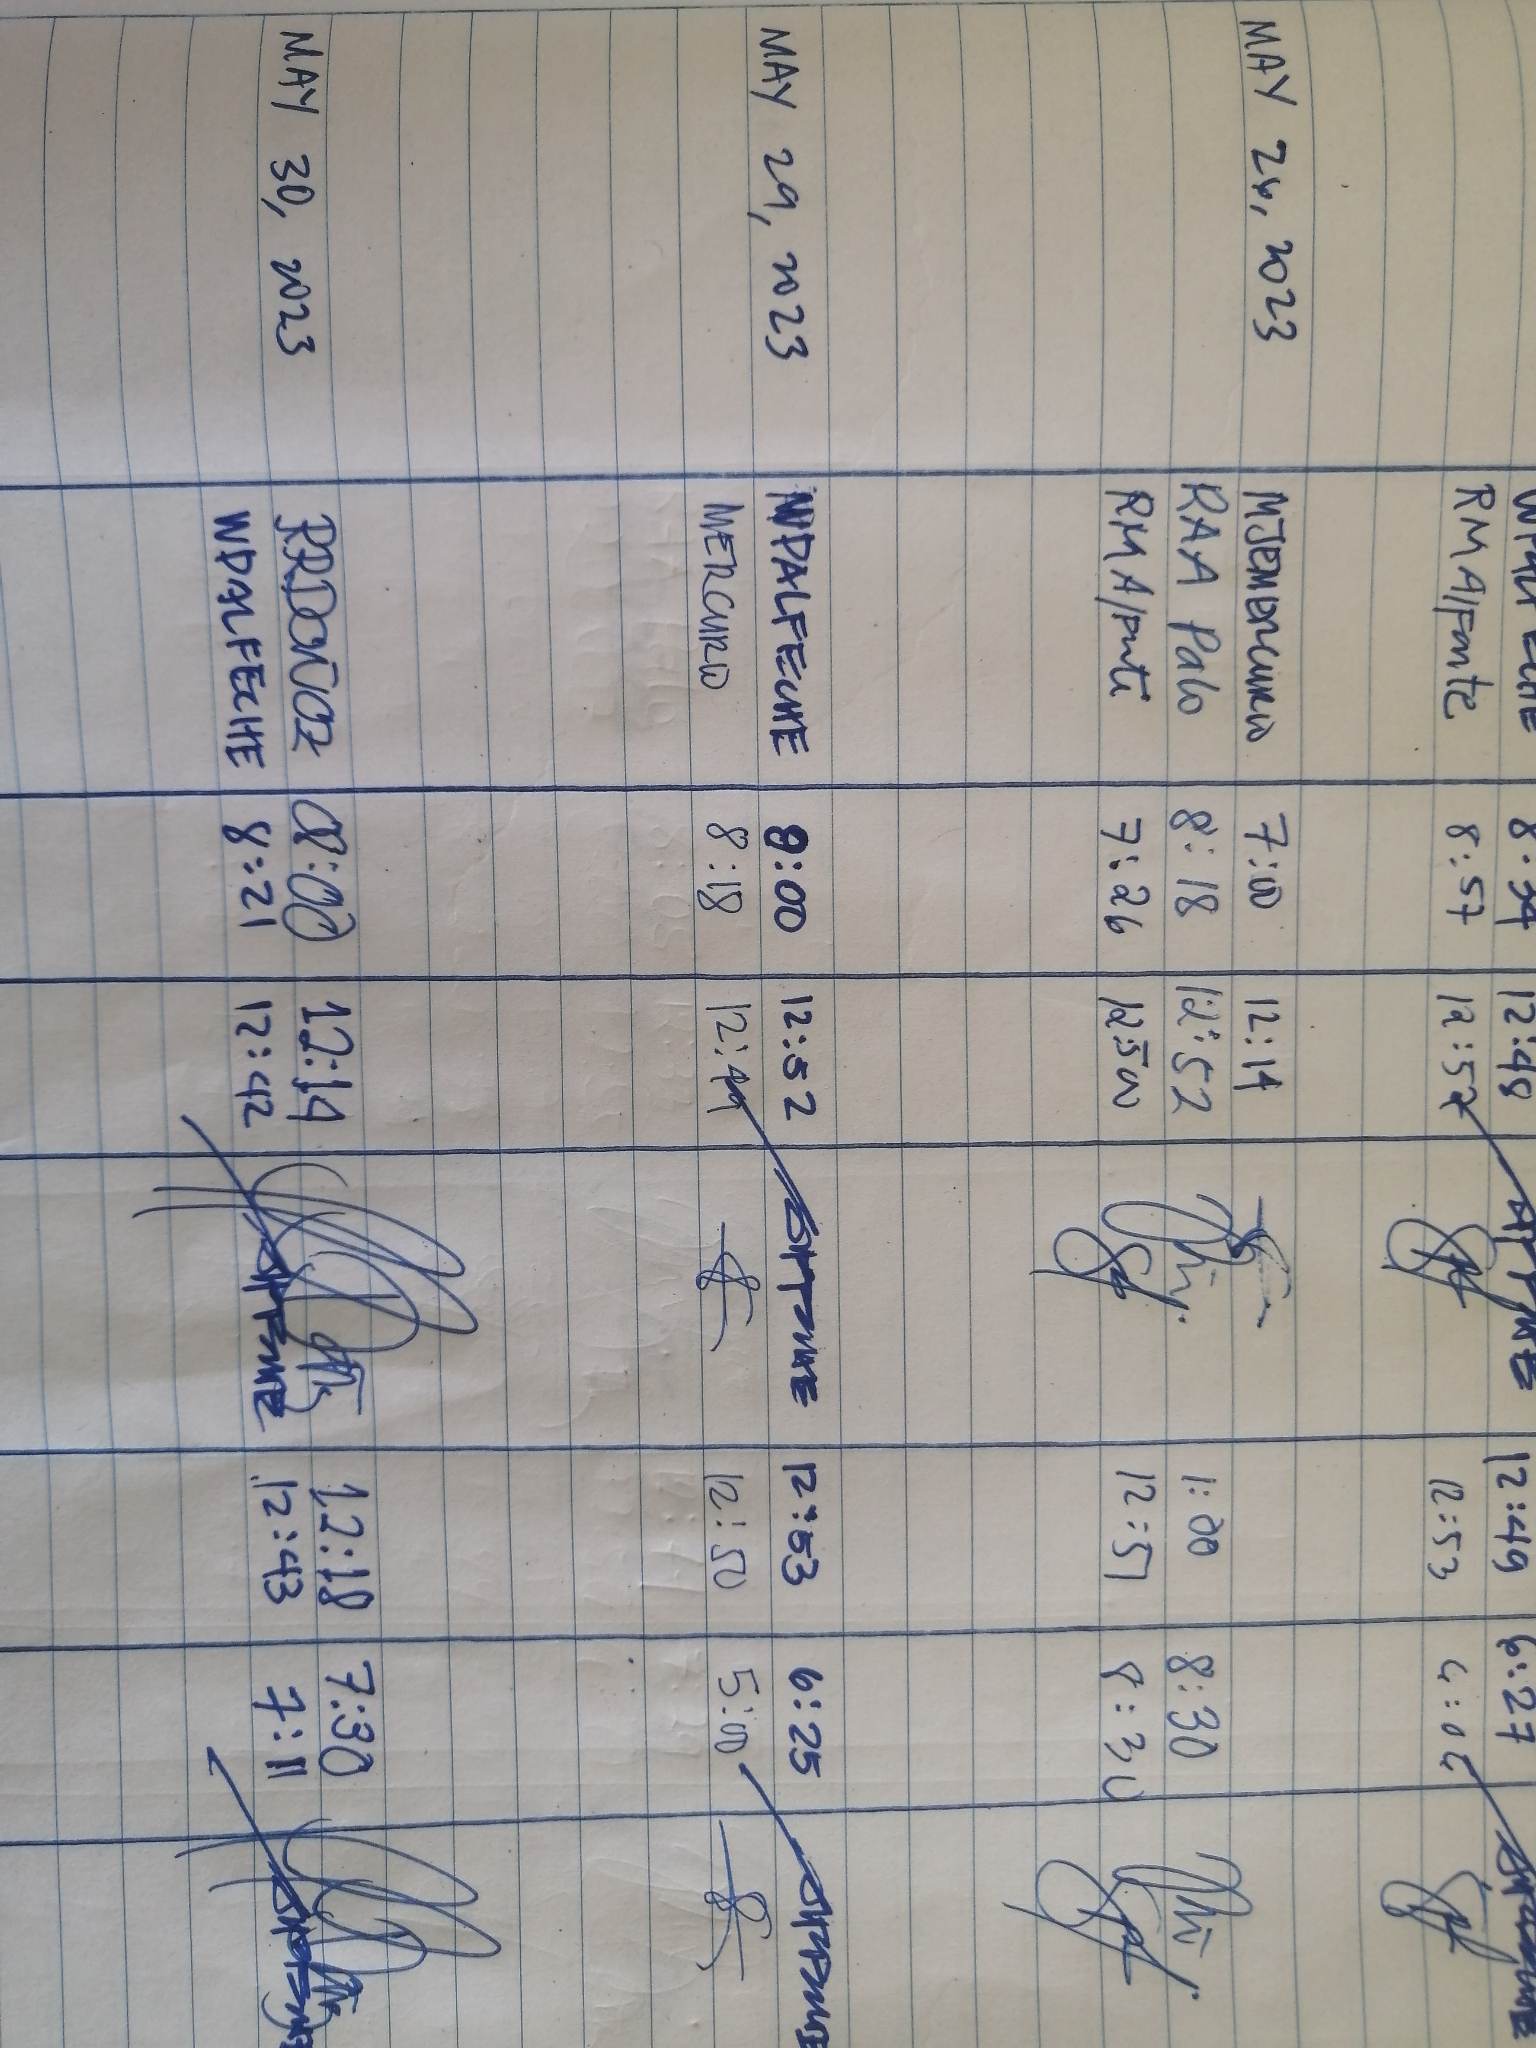 WPALFECHE 8:34 12:48 12:49 6:27
RMA/Fonte 8:57 12:52 12:53
MAY 26, 2023 MJEMERCURIO 7:00 12:14
RAA Palo 8:18 12:52 1:00 8:30
RMA/Fonte 7:26 12:50 12:51 8:30
MAY 29, 2023 WPALFECHE 8:00 12:52 12:53 6:25
MERCURIO 8:18 12:49 12:50 5:00
MAY 30, 2023 08:00 12:14 12:18 7:30
WPALFECHE 8:21 12:42 12:43 7:11